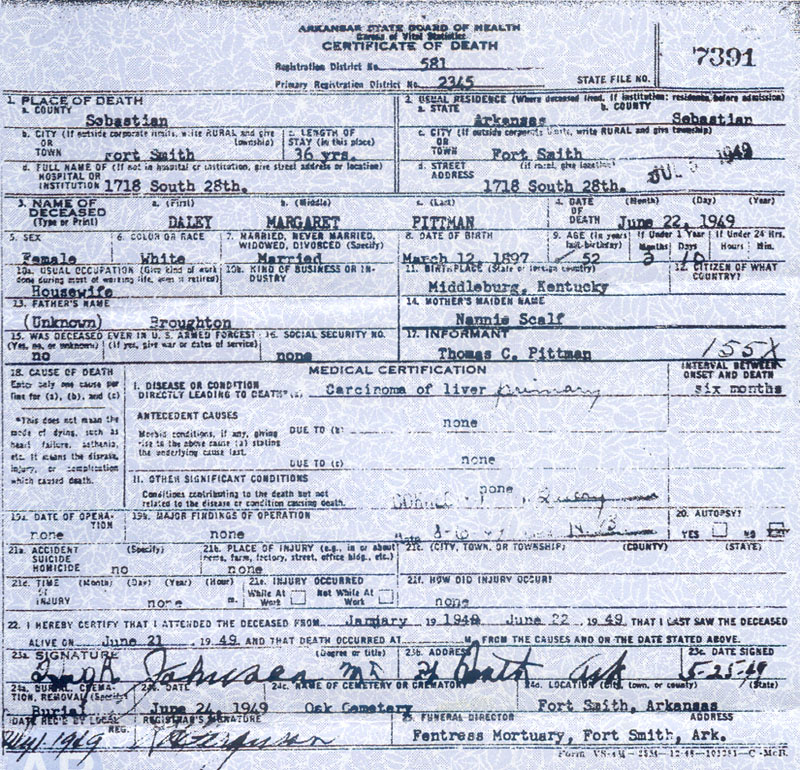 ARKANSAS STATE BOARD OF HEALTH
Bureau of Vital Statistics
CERTIFICATE OF DEATH
7391
Registration District No. 581
Primary Registration District No. 2345 STATE FILE NO.
1. PLACE OF DEATH 2. USUAL RESIDENCE (Where deceased lived, if institution: residence before admission)
a. COUNTY Sebastian a. STATE Arkansas b. COUNTY Sebastian
b. CITY (If outside corporate limits, write RURAL and give township) OR TOWN Fort Smith c. LENGTH OF STAY (in this place) 36 yrs. c. CITY (If outside corporate limits, write RURAL and give township) OR TOWN Fort Smith
1949
d. FULL NAME OF (If not in hospital or institution, give street address or location) HOSPITAL OR INSTITUTION 1718 South 28th. d. STREET ADDRESS (If rural, give location) 1718 South 28th.
3. NAME OF DECEASED (Type or Print) a. (First) DALEY b. (Middle) MARGARET c. (Last) PITTMAN 4. DATE OF DEATH (Month) (Day) (Year) June 22, 1949
5. SEX Female 6. COLOR OR RACE White 7. MARRIED, NEVER MARRIED, WIDOWED, DIVORCED (Specify) Married 8. DATE OF BIRTH March 12, 1897 9. AGE (In years last birthday) 52 If Under 1 Year Months 3 Days 10 If Under 24 Hrs. Hours Min.
10a. USUAL OCCUPATION (Give kind of work done during most of working life, even if retired) Housewife 10b. KIND OF BUSINESS OR INDUSTRY 11. BIRTHPLACE (State or foreign country) Middleburg, Kentucky 12. CITIZEN OF WHAT COUNTRY?
13. FATHER'S NAME (Unknown) Broughton 14. MOTHER'S MAIDEN NAME Nannie Scalf
15. WAS DECEASED EVER IN U. S. ARMED FORCES? (Yes, no, or unknown) (If yes, give war or dates of service) no 16. SOCIAL SECURITY NO. none 17. INFORMANT Thomas C. Pittman
155X
18. CAUSE OF DEATH MEDICAL CERTIFICATION INTERVAL BETWEEN ONSET AND DEATH
Enter only one cause per line for (a), (b), and (c) I. DISEASE OR CONDITION DIRECTLY LEADING TO DEATH* (a) Carcinoma of liver primary six months
*This does not mean the mode of dying, such as heart failure, asthenia, etc. It means the disease, injury, or complication which caused death.
ANTECEDENT CAUSES
Morbid conditions, if any, giving rise to the above cause (a) stating the underlying cause last.
DUE TO (b) none
DUE TO (c) none
II. OTHER SIGNIFICANT CONDITIONS
Conditions contributing to the death but not related to the disease or condition causing death. none
19a. DATE OF OPERATION none 19b. MAJOR FINDINGS OF OPERATION none 20. AUTOPSY? YES NO
21a. ACCIDENT SUICIDE HOMICIDE (Specify) no 21b. PLACE OF INJURY (e.g., in or about home, farm, factory, street, office bldg., etc.) none 21c. (CITY, TOWN, OR TOWNSHIP) (COUNTY) (STATE)
21d. TIME OF INJURY (Month) (Day) (Year) (Hour) none m. 21e. INJURY OCCURRED While At Work Not While At Work 21f. HOW DID INJURY OCCUR? none
22. I HEREBY CERTIFY THAT I ATTENDED THE DECEASED FROM January 1949 June 22, 1949 THAT I LAST SAW THE DECEASED
ALIVE ON June 21, 1949 AND THAT DEATH OCCURRED AT M., FROM THE CAUSES AND ON THE DATE STATED ABOVE.
23a. SIGNATURE Johnson (Degree or title) 23b. ADDRESS Ft Smith Ark 23c. DATE SIGNED 5-25-49
24a. BURIAL, CREMATION, REMOVAL (Specify) Burial 24b. DATE June 24, 1949 24c. NAME OF CEMETERY OR CREMATORY Oak Cemetery 24d. LOCATION (City, town, or county) (State) Fort Smith, Arkansas
DATE REC'D BY LOCAL REG. 1949 REGISTRAR'S SIGNATURE Ferguson 25. FUNERAL DIRECTOR ADDRESS Fentress Mortuary, Fort Smith, Ark.